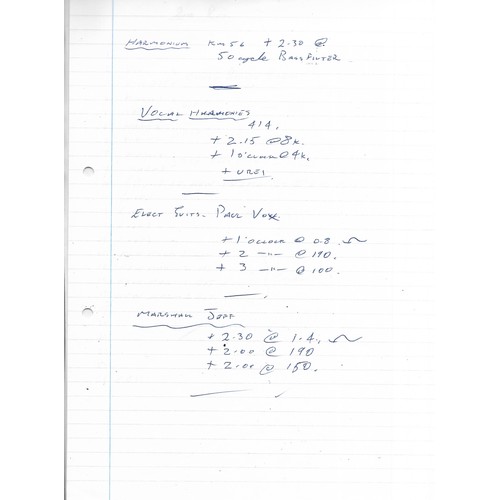 HARMONIUM KM56 + 2.30 @
50 cycle BASS FILTER
VOCAL HARMONIES
414.
+ 2.15 @ 8k.
+ 1 o'clock @ 4k.
+ UREI
ELECT GUITS. PAUL VOX
+ 1 o'clock @ 0.8
+ 2 -"- @ 190.
+ 3 -"- @ 100.
MARSHALL JEFF
+ 2.30 @ 1.4.
+ 2.00 @ 190
+ 2.00 @ 150.